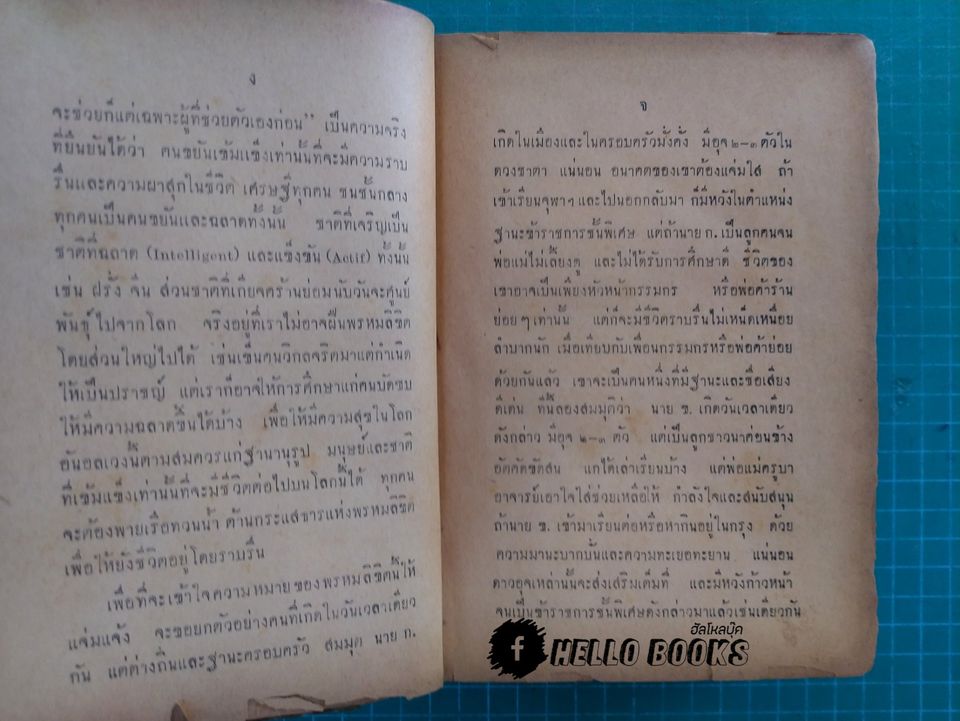 ง
จะช่วยก็แต่เฉพาะผู้ที่ช่วยตัวเองก่อน” เป็นความจริง
ที่ยืนยันได้ว่า คนขยันเข้มแข็งเท่านั้นที่จะมีความราบ
รื่นและความผาสุกในชีวิต เศรษฐีทุกคน ชนชั้นกลาง
ทุกคนเป็นคนขยันและฉลาดทั้งนั้น ชาติที่เจริญเป็น
ชาติที่ฉลาด (Intelligent) และแข็งขัน (Actif) ทั้งนั้น
เช่น ฝรั่ง จีน ส่วนชาติที่เกียจคร้านย่อมนับวันจะศูนย์
พันธุ์ไปจากโลก จริงอยู่ที่เราไม่อาจฝืนพรหมลิขิต
โดยส่วนใหญ่ไปได้ เช่นเข็นคนวิกลจริตมาแต่กำเนิด
ให้เป็นปราชญ์ แต่เราก็อาจให้การศึกษาแก่คนบัดซบ
ให้มีความฉลาดขึ้นได้บ้าง เพื่อให้มีความสุขในโลก
อันอลเวงนี้ตามสมควรแก่ฐานานุรูป มนุษย์และชาติ
ที่เข้มแข็งเท่านั้นที่จะมีชีวิตต่อไปบนโลกนี้ได้ ทุกคน
จะต้องพายเรือทวนน้ำ ต้านกระแสธารแห่งพรหมลิขิต
เพื่อให้ยังชีวิตอยู่โดยราบรื่น
เพื่อที่จะเข้าใจความหมายของพรหมลิขิตนี้ให้
แจ่มแจ้ง จะขอยกตัวอย่างคนที่เกิดในวันเวลาเดียว
กัน แต่ต่างถิ่นและฐานะครอบครัว สมมุต นาย ก.
จ
เกิดในเมืองและในครอบครัวมั่งคั่ง มีอุจ ๒–๓ ตัวใน
ดวงชาตา แน่นอน อนาคตของเขาต้องแจ่มใส ถ้า
เข้าเรียนจุฬาฯ และไปนอกกลับมา ก็มีหวังในตำแหน่ง
ฐานะข้าราชการชั้นพิเศษ แต่ถ้านาย ก. เป็นลูกคนจน
พ่อแม่ไม่เลี้ยงดู และไม่ได้รับการศึกษาดี ชีวิตของ
เขาอาจเป็นเพียงหัวหน้ากรรมกร หรือพ่อค้าร้าน
ย่อยๆ เท่านั้น แต่ก็จะมีชีวิตราบรื่นไม่เหน็ดเหนื่อย
ลำบากนัก เมื่อเทียบกับเพื่อนกรรมกรหรือพ่อค้าย่อย
ด้วยกันแล้ว เขาจะเป็นคนหนึ่งที่มีฐานะและชื่อเสียง
ดีเด่น ทีนี้ลองสมมุติว่า นาย ข. เกิดวันเวลาเดียว
ดังกล่าว มีอุจ ๒–๓ ตัว แต่เป็นลูกชาวนาค่อนข้าง
อัตคัดขัดสน แกได้เล่าเรียนบ้าง แต่พ่อแม่ครูบา
อาจารย์เอาใจใส่ช่วยเหลือให้ กำลังใจและสนับสนุน
ถ้านาย ข. เข้ามาเรียนต่อหรือหากินอยู่ในกรุง ด้วย
ความมานะบากบั่นและความทะเยอทะยาน แน่นอน
ดาวอุจเหล่านั้นจะส่งเสริมเต็มที่ และมีหวังก้าวหน้า
จนเป็นข้าราชการชั้นพิเศษดังกล่าวมาแล้วเช่นเดียวกัน
ฮัลโหลบุ๊ค
f HELLO BOOKS